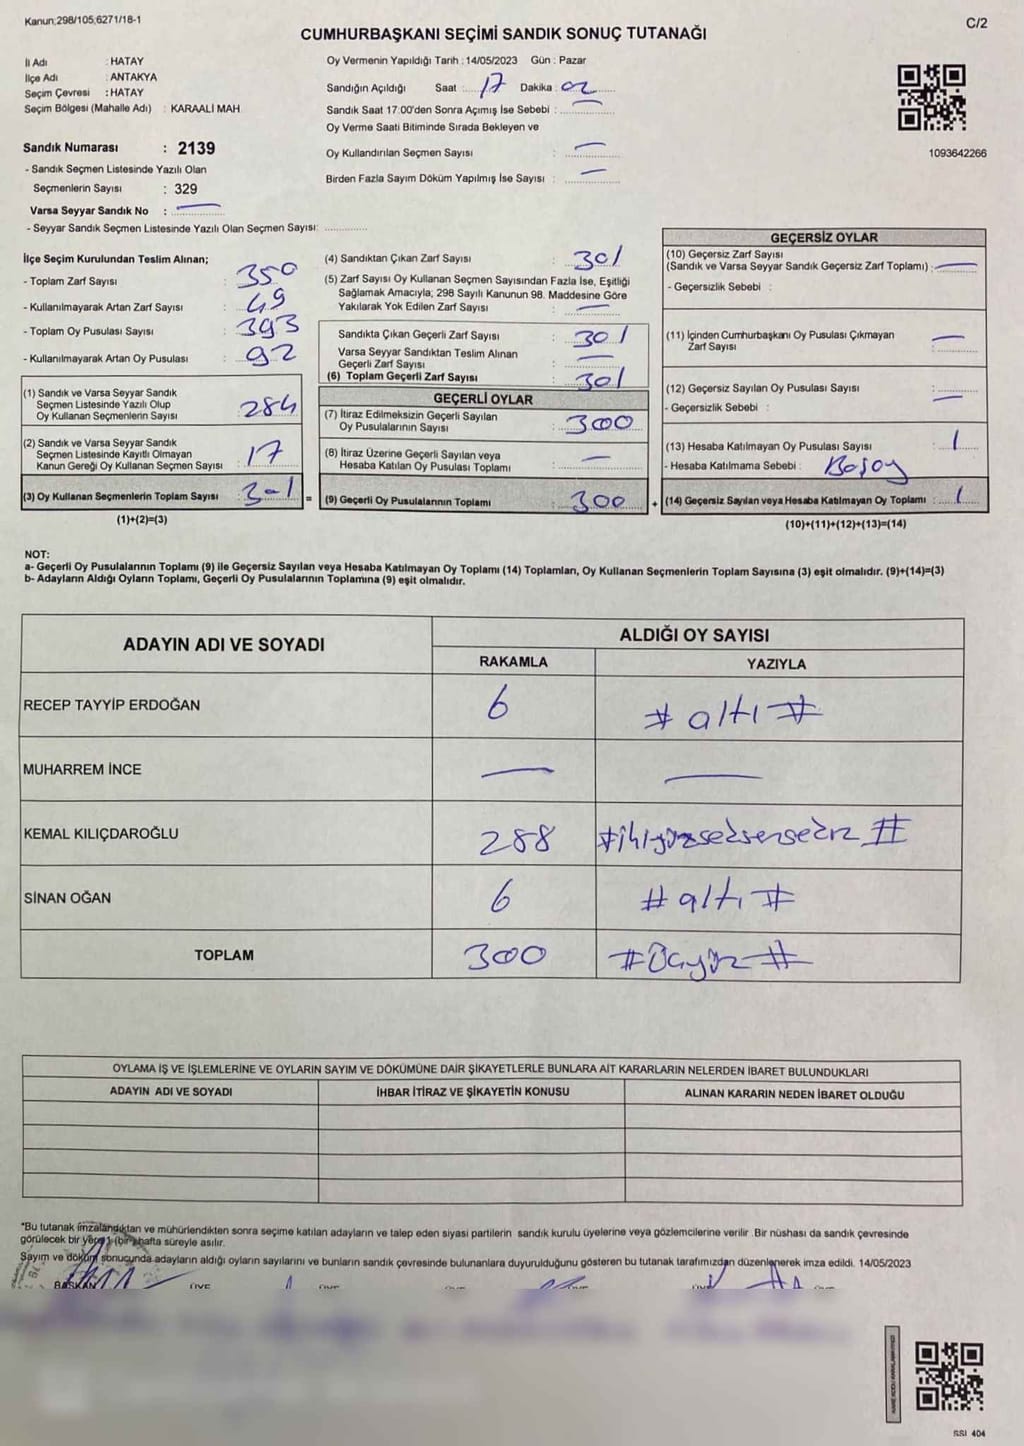 Kanun:298/105;6271/18-1
C/2
CUMHURBAŞKANI SEÇİMİ SANDIK SONUÇ TUTANAĞI
İl Adı : HATAY
İlçe Adı : ANTAKYA
Seçim Çevresi : HATAY
Seçim Bölgesi (Mahalle Adı) : KARAALİ MAH.
Sandık Numarası : 2139
- Sandık Seçmen Listesinde Yazılı Olan
Seçmenlerin Sayısı : 329
Varsa Seyyar Sandık No : —
- Seyyar Sandık Seçmen Listesinde Yazılı Olan Seçmen Sayısı:
Oy Vermenin Yapıldığı Tarih : 14/05/2023 Gün : Pazar
Sandığın Açıldığı Saat : 17 Dakika : 02
Sandık Saat 17:00'den Sonra Açımış İse Sebebi : —
Oy Verme Saati Bitiminde Sırada Bekleyen ve
Oy Kullandırılan Seçmen Sayısı : —
Birden Fazla Sayım Döküm Yapılmış İse Sayısı : —
1093642266
İlçe Seçim Kurulundan Teslim Alınan;
- Toplam Zarf Sayısı : 350
- Kullanılmayarak Artan Zarf Sayısı : 49
- Toplam Oy Pusulası Sayısı : 393
- Kullanılmayarak Artan Oy Pusulası : 92
(1) Sandık ve Varsa Seyyar Sandık
Seçmen Listesinde Yazılı Olup
Oy Kullanan Seçmenlerin Sayısı : 284
(2) Sandık ve Varsa Seyyar Sandık
Seçmen Listesinde Kayıtlı Olmayan
Kanun Gereği Oy Kullanan Seçmen Sayısı : 17
(3) Oy Kullanan Seçmenlerin Toplam Sayısı : 301 =
(1)+(2)=(3)
(4) Sandıktan Çıkan Zarf Sayısı : 301
(5) Zarf Sayısı Oy Kullanan Seçmen Sayısından Fazla İse, Eşitliği
Sağlamak Amacıyla; 298 Sayılı Kanunun 98. Maddesine Göre
Yakılarak Yok Edilen Zarf Sayısı : —
Sandıkta Çıkan Geçerli Zarf Sayısı : 301
Varsa Seyyar Sandıktan Teslim Alınan
Geçerli Zarf Sayısı : —
(6) Toplam Geçerli Zarf Sayısı : 301
GEÇERLİ OYLAR
(7) İtiraz Edilmeksizin Geçerli Sayılan
Oy Pusulalarının Sayısı : 300
(8) İtiraz Üzerine Geçerli Sayılan veya
Hesaba Katılan Oy Pusulası Toplamı : —
(9) Geçerli Oy Pusulalarının Toplamı : 300 +
GEÇERSİZ OYLAR
(10) Geçersiz Zarf Sayısı
(Sandık ve Varsa Seyyar Sandık Geçersiz Zarf Toplamı) : —
- Geçersizlik Sebebi :
(11) İçinden Cumhurbaşkanı Oy Pusulası Çıkmayan
Zarf Sayısı : —
(12) Geçersiz Sayılan Oy Pusulası Sayısı : —
- Geçersizlik Sebebi :
(13) Hesaba Katılmayan Oy Pusulası Sayısı : 1
- Hesaba Katılmama Sebebi :
(14) Geçersiz Sayılan veya Hesaba Katılmayan Oy Toplamı : 1
(10)+(11)+(12)+(13)=(14)
NOT:
a- Geçerli Oy Pusulalarının Toplamı (9) ile Geçersiz Sayılan veya Hesaba Katılmayan Oy Toplamı (14) Toplamları, Oy Kullanan Seçmenlerin Toplam Sayısına (3) eşit olmalıdır. (9)+(14)=(3)
b- Adayların Aldığı Oyların Toplamı, Geçerli Oy Pusulalarının Toplamına (9) eşit olmalıdır.
ADAYIN ADI VE SOYADI
ALDIĞI OY SAYISI
RAKAMLA YAZIYLA
RECEP TAYYİP ERDOĞAN 6 # altı #
MUHARREM İNCE — —
KEMAL KILIÇDAROĞLU 288 #ikiyüzseksensekiz #
SİNAN OĞAN 6 # altı #
TOPLAM 300 #Üçyüz #
OYLAMA İŞ VE İŞLEMLERİNE VE OYLARIN SAYIM VE DÖKÜMÜNE DAİR ŞİKAYETLERLE BUNLARA AİT KARARLARIN NELERDEN İBARET BULUNDUKLARI
ADAYIN ADI VE SOYADI İHBAR İTİRAZ VE ŞİKAYETİN KONUSU ALINAN KARARIN NEDEN İBARET OLDUĞU
*Bu tutanak imzalandıktan ve mühürlendikten sonra seçime katılan adayların ve talep eden siyasi partilerin sandık kurulu üyelerine veya gözlemcilerine verilir. Bir nüshası da sandık çevresinde
görülecek bir yere 1 (bir) hafta süreyle asılır.
Sayım ve döküm sonucunda adayların aldığı oyların sayılarını ve bunların sandık çevresinde bulunanlara duyurulduğunu gösteren bu tutanak tarafımızdan düzenlenerek imza edildi. 14/05/2023
BAŞKAN ÜYE ÜYE ÜYE ÜYE ÜYE
SSI 404